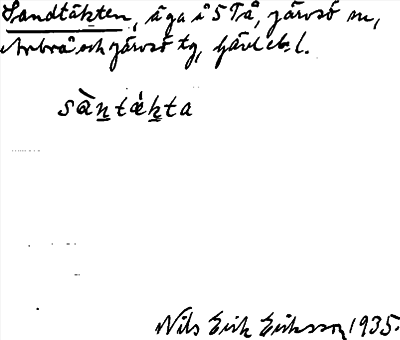 Sandtäkten, äga å 5 Tå, Järvsö sn,
Arbrå och Järvsö tg, Gävleb. l.
sàntǽkta
Nils Erik Eriksson 1935.